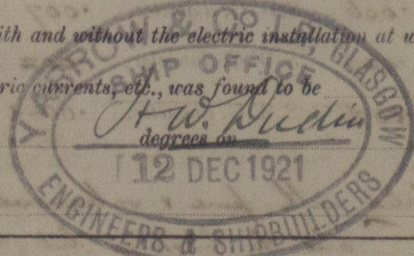 ith and without the electric installation at w
ric currents, etc., was found to be
degrees on
YARROW & Co. LD., GLASGOW
SHIP OFFICE
H. W. Dudin
12 DEC 1921
ENGINEERS & SHIPBUILDERS